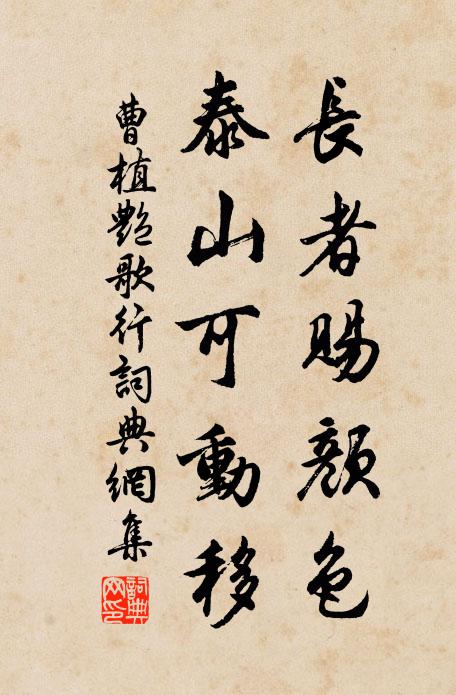 長者賜顏色
泰山可動移
曹植艷歌行詞典網集
詞典網印